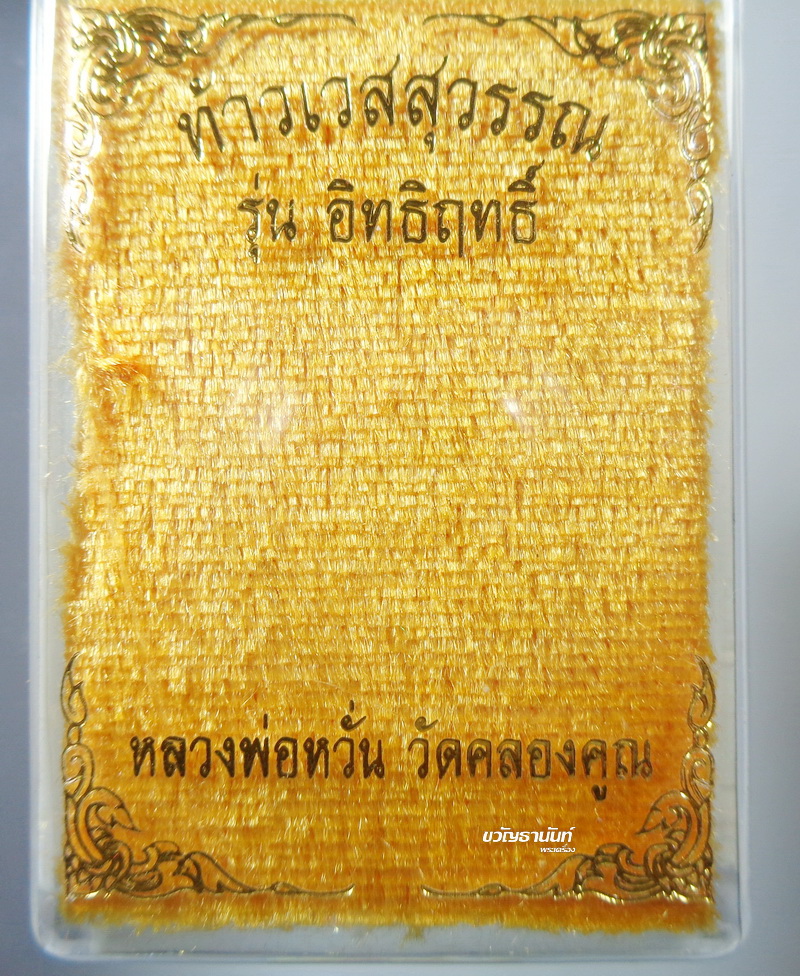 ท้าวเวสสุวรรณ
รุ่น อิทธิฤทธิ์
หลวงพ่อหวั่น วัดคลองคูณ
ขวัญธานันท์
พระเครื่อง